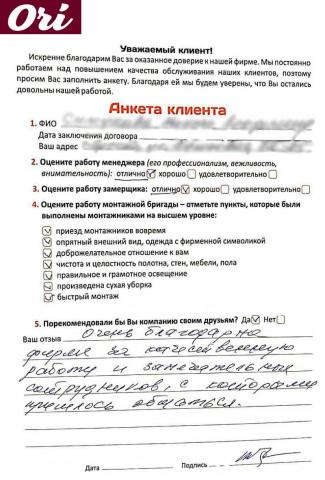 Ori
Уважаемый клиент!
Искренне благодарим Вас за оказанное доверие к нашей фирме. Мы постоянно
работаем над повышением качества обслуживания наших клиентов, поэтому
просим Вас заполнить анкету. Благодаря ей мы будем уверены, что Вы остались
довольны нашей работой.
Анкета клиента
1. ФИО
Дата заключения договора
Ваш адрес
2. Оцените работу менеджера (его профессионализм, вежливость,
внимательность): отлично хорошо удовлетворительно
3. Оцените работу замерщика: отлично хорошо удовлетворительно
4. Оцените работу монтажной бригады – отметьте пункты, которые были
выполнены монтажниками на высшем уровне:
приезд монтажников вовремя
опрятный внешний вид, одежда с фирменной символикой
доброжелательное отношение к вам
чистота и целостность полотна, стен, мебели, пола
правильное и грамотное освещение
произведена сухая уборка
быстрый монтаж
5. Порекомендовали бы Вы компанию своим друзьям? Да Нет
Ваш отзыв Очень благодарна
фирме за качественную
работу и замечательных
сотрудников, с которыми
пришлось общаться.
Дата Подпись